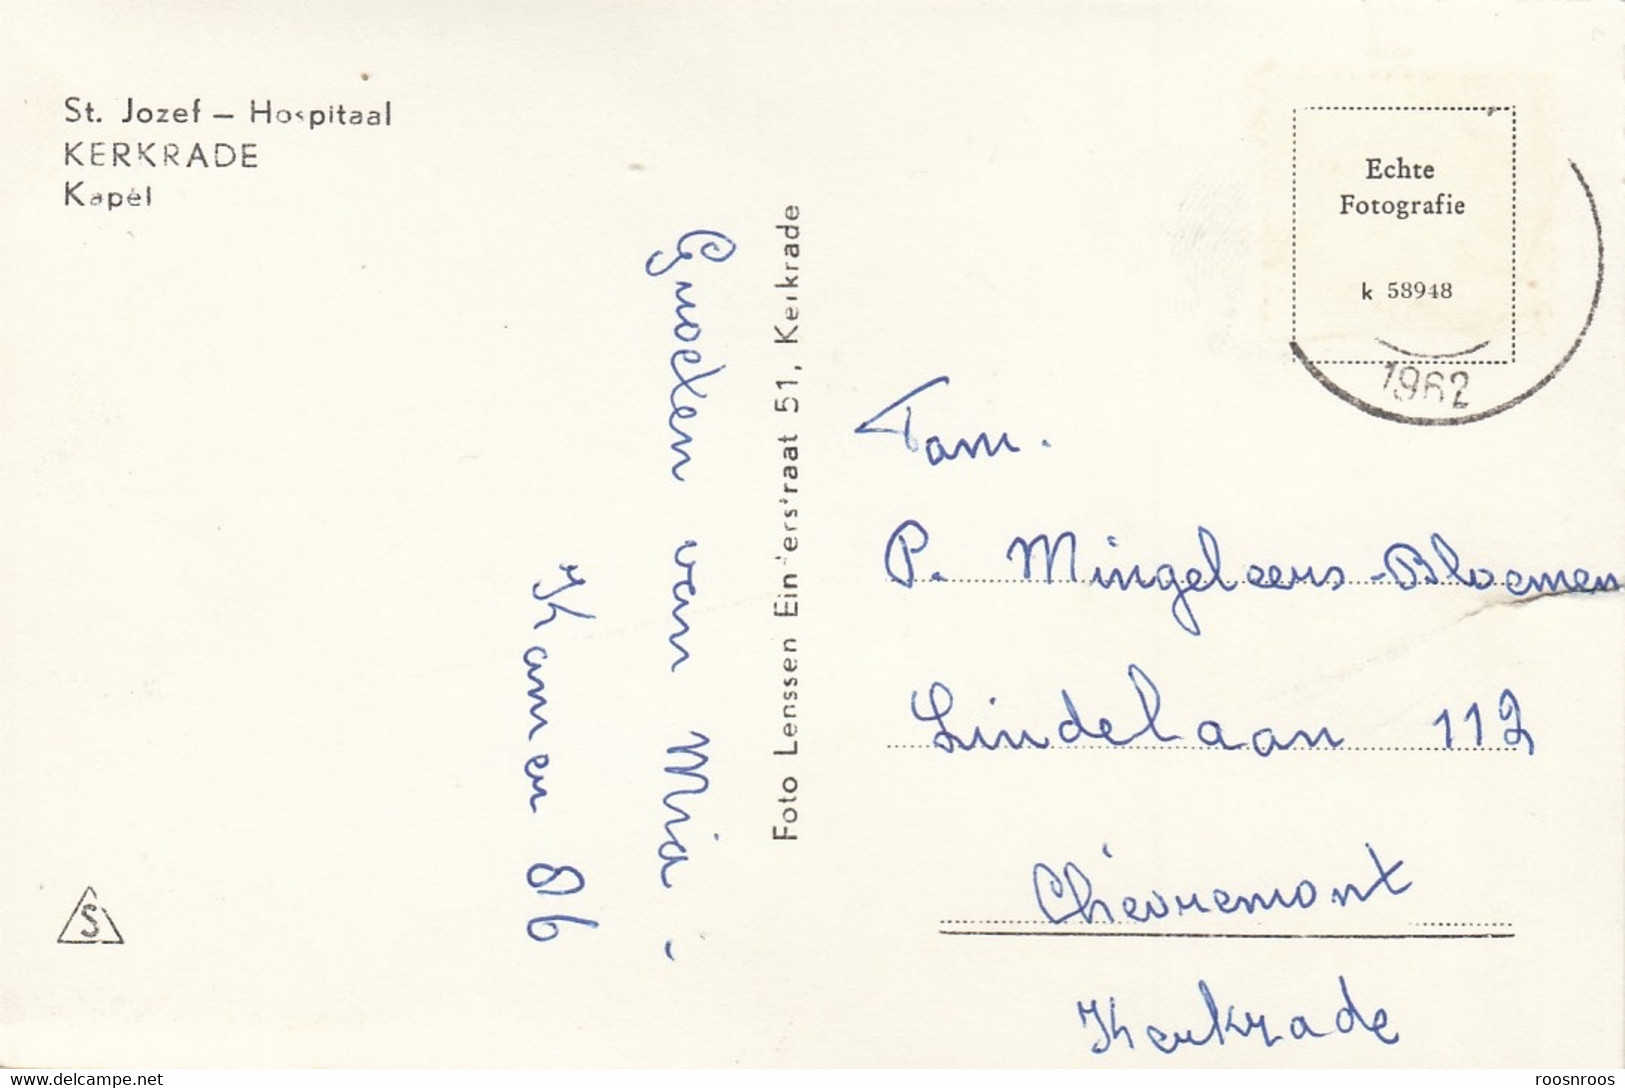 St. Jozef – Hospitaal
KERKRADE
Kapèl
Groeten van Mia.
Kamer 86
Foto Lenssen Einderstraat 51, Kerkrade
Echte
Fotografie
k 58948
1962
Fam.
P. Mingeleers-Bloemen
Lindelaan 112
Chèvremont
Kerkrade
S
www.delcampe.net
roosnroos